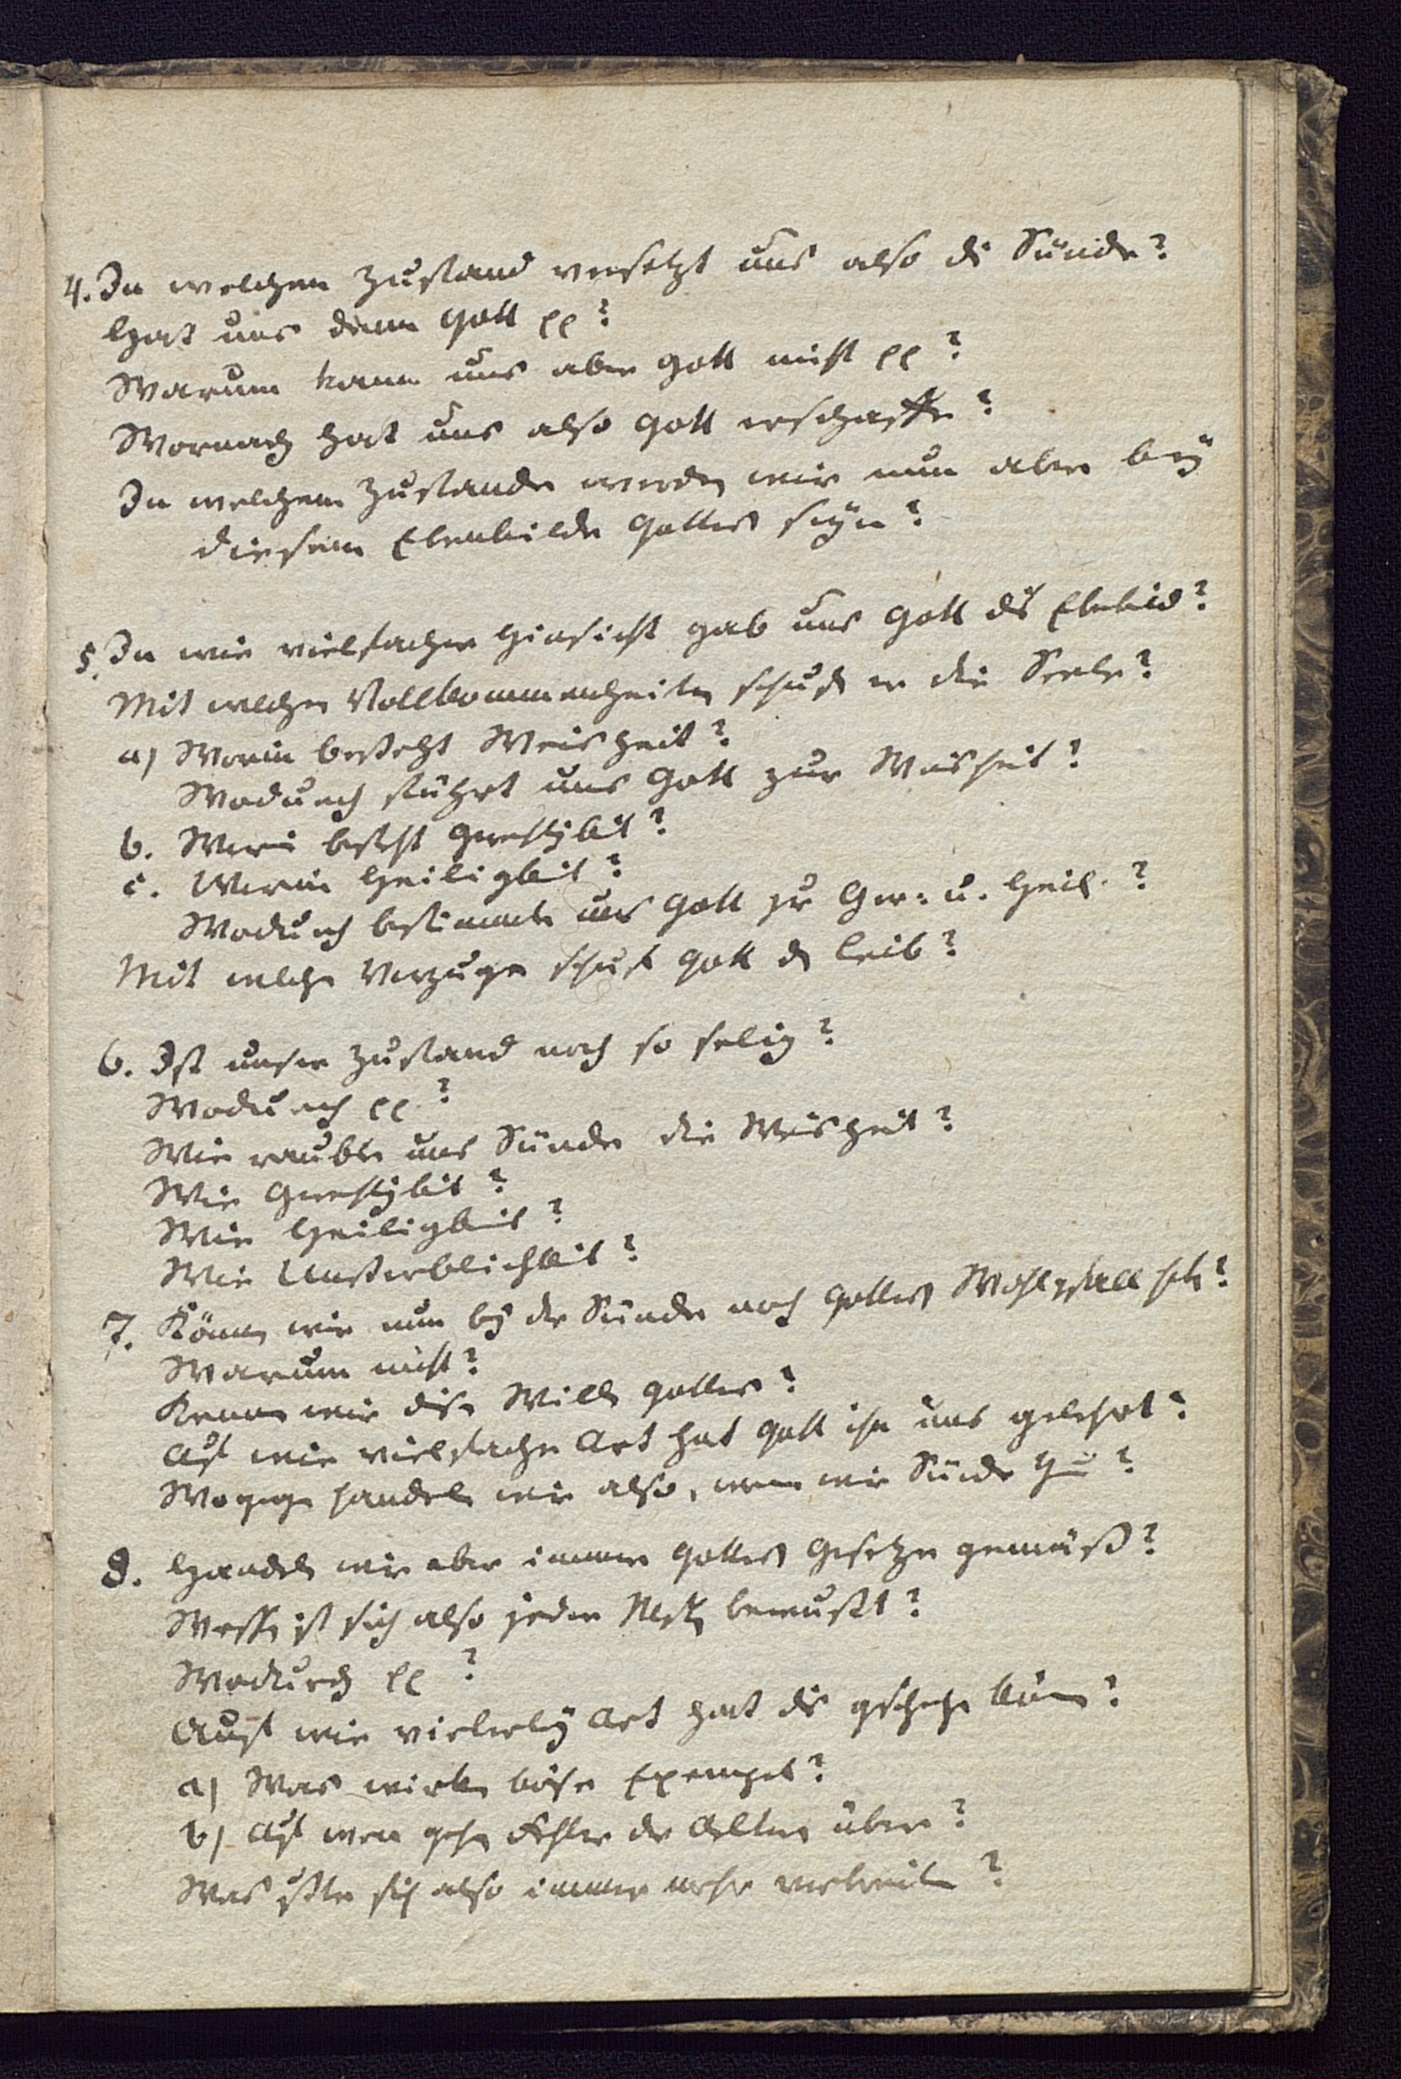 4. In welchen Zustand versetzt uns also di Sünde?
Hat uns denn Gott pp?
Warum kann uns aber Gott nicht pp?
Wornach hat uns also Gott erschaffe?
In welchem Zustande werden wir nun aber bey
diesem Ebenbilde Gottes seyn?
5. In wie vielfacher Hinsicht gab uns Gott ds Ebebild?
Mit welchen Vollkommenheiten schuf er die Seele?
a) Worin besteht Weisheit?
Wodurch führt uns Gott zur Weisheit?
b. Worin besteht Grechtigkeit?
c. Worin Heiligkeit?
Wodurch bestimmte uns Gott zur Ger: u. Heil.?
Mit welche Vorzuge schuf Gott d Leib?
6. Ist unser Zustand noch so selig?
Wodurch pp?
Wie raubte uns Sünde die Weisheit?
Wie Grechtigkeit?
Wie Heiligkeit?
Wie Unsterblichkeit?
7. Können wir nun bey der Sünde noch Gottes Wohlgefall habe?
Warum nicht?
Kennen wir dise Wille Gottes?
Auf wie vielfache Art hat Gott ihn uns gelehrt?
Wogege handeln wir also, wenn wir Sünde thun?
8. Handeln wir aber immer Gottes Gesetze gemäß?
Wessen ist sich also jeder Msch bewußt?
Wodurch pp?
Auf wie vielerley Art hat ds gschehe könne?
a) Was wirken böse Exempel?
b) Auf wen gehen Fehler der Aeltern über?
Was mußte sich also immer mehr verbreiten?